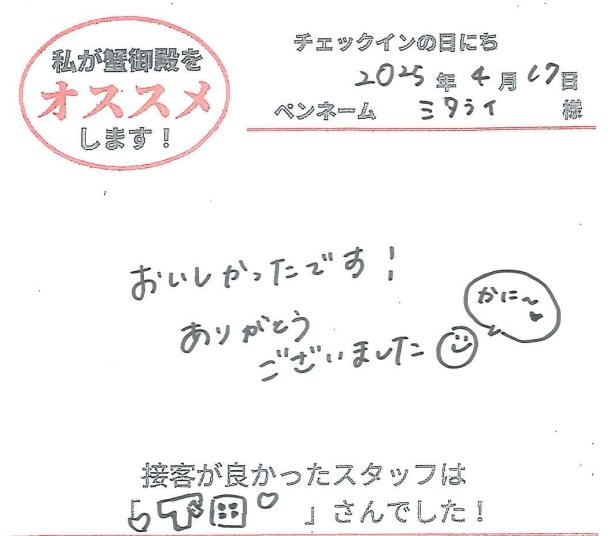 私が蟹御殿を
オススメ
します！
チェックインの日にち
2025年4月17日
ペンネーム ミタライ 様
おいしかったです！
ありがとう
ございました
かに〜
接客が良かったスタッフは
「下田」さんでした！